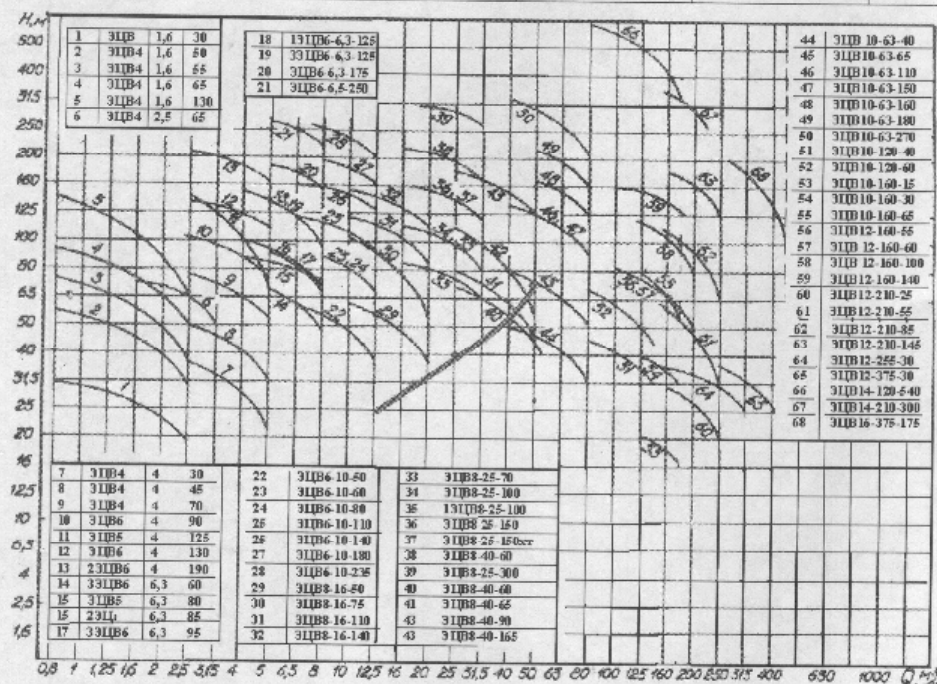 Н,м
500
400
31,5
250
200
160
125
100
80
63
50
40
31,5
25
20
16
12,5
10
6,3
4
2,5
1,6
1 ЭЦВ 1,6 30
2 ЭЦВ4 1,6 50
3 ЭЦВ4 1,6 55
4 ЭЦВ4 1,6 65
5 ЭЦВ4 1,6 130
6 ЭЦВ4 2,5 65
18 1ЭЦВ6-6,3-125
19 3ЭЦВ6-6,3-125
20 ЭЦВ6-6,3-175
21 ЭЦВ6-6,5-250
44 ЭЦВ 10-63-40
45 ЭЦВ10-63-65
46 ЭЦВ10-63-110
47 ЭЦВ10-63-150
48 ЭЦВ10-63-160
49 ЭЦВ10-63-180
50 ЭЦВ10-63-270
51 ЭЦВ10-120-40
52 ЭЦВ10-120-60
53 ЭЦВ10-160-15
54 ЭЦВ10-160-30
55 ЭЦВ10-160-65
56 ЭЦВ12-160-55
57 ЭЦВ 12-160-60
58 ЭЦВ 12-160-100
59 ЭЦВ12-160-140
60 ЭЦВ12-210-25
61 ЭЦВ12-210-55
62 ЭЦВ12-210-85
63 ЭЦВ12-210-145
64 ЭЦВ12-255-30
65 ЭЦВ12-375-30
66 ЭЦВ14-120-540
67 ЭЦВ14-210-300
68 ЭЦВ16-375-175
7 ЭЦВ4 4 30
8 ЭЦВ4 4 45
9 ЭЦВ4 4 70
10 ЭЦВ6 4 90
11 ЭЦВ5 4 125
12 ЭЦВ6 4 130
13 2ЭЦВ6 4 190
14 3ЭЦВ6 6,3 60
15 ЭЦВ5 6,3 80
15 2ЭЦ 6,3 85
17 3ЭЦВ6 6,3 95
22 ЭЦВ6-10-50
23 ЭЦВ6-10-60
24 ЭЦВ6-10-80
25 ЭЦВ6-10-110
26 ЭЦВ6-10-140
27 ЭЦВ6-10-180
28 ЭЦВ6-10-235
29 ЭЦВ8-16-50
30 ЭЦВ8-16-75
31 ЭЦВ8-16-110
32 ЭЦВ8-16-140
33 ЭЦВ8-25-70
34 ЭЦВ8-25-100
35 1ЭЦВ8-25-100
36 ЭЦВ8 25-150
37 ЭЦВ8-25-150хтг
38 ЭЦВ8-40-60
39 ЭЦВ8-25-300
40 ЭЦВ8-40-60
41 ЭЦВ8-40-65
43 ЭЦВ8-40-90
43 ЭЦВ8-40-165
0,8 1 1,25 1,6 2 2,5 3,15 4 5 6,3 8 10 12,5 16 20 25 31,5 40 50 63 80 100 125 160 200 250 315 400 630 1000 Q,м³